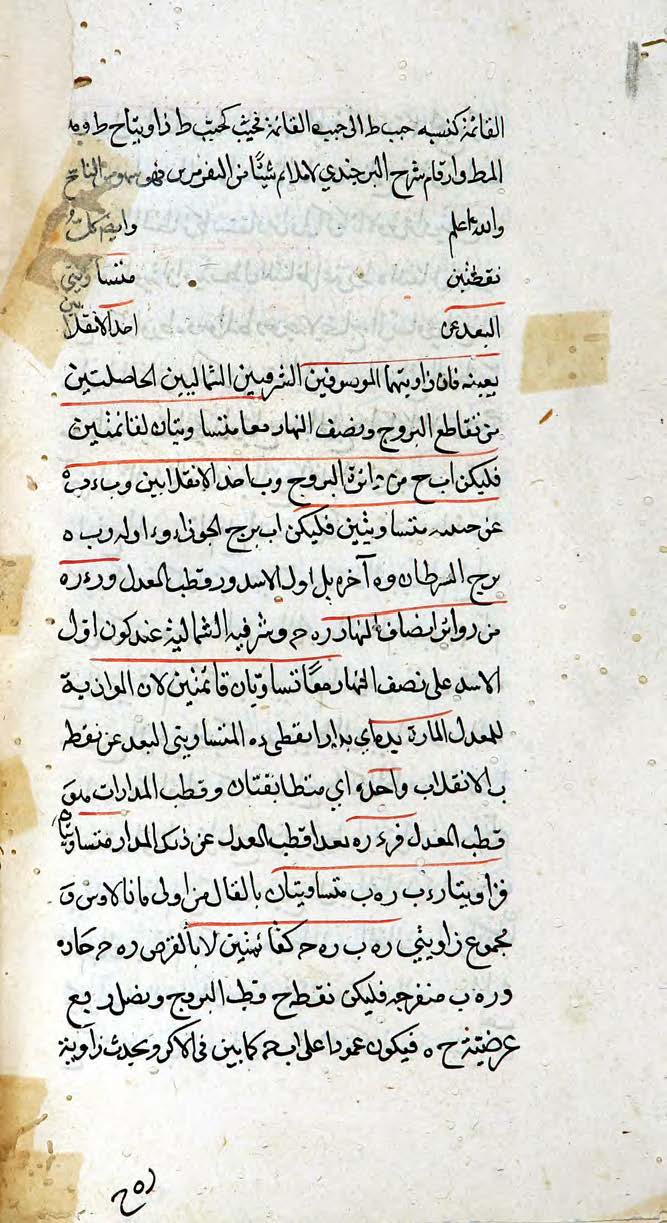 القائمة كنسبه جب ط الى جب القائمة فحيث كجيب ط زاويتاح ط و ه
المط وارقام شرح البرجندي لا تلائم شيئا من النفرين فهو سهو من الناسخ
والله اعلم وايضا كل
نقطتين متساويتي
البعد عن احد الانقلابين
بعينه فان زاويتهما الموسوفين الشرقيين الشماليين الحاصلتين
من تقاطع البروج ونصف النهار معا متساويتان لقائمتين
فليكن اب ح من دائرة البروج وب احد الانقلابين وب ء وب ه
عن جنبيه متساويتين فليكن اب برج الجوزاء وء اوله وب ه
برج السرطان وه آخره بل اول الاسد ور قطب المعدل ورء ره
من دوائر انصاف النهار ره ح وشرقيه الشمالية عند كون اول
الاسد على نصف النهار معا تساويان قائمتين لان الموازية
للمعدل المارة بد اي بدارا نقطتي ده المتساويتي البعد عن نقطه
ب الانقلاب واحده اي متطابقتان وقطب المدارات هو
قطب المعدل فرء ره بعدا قطب المعدل عن ذلك المدار متساويتان
فزاويتا رء ب ره ب متساويتان بالقال من اولى مانالاوس و
مجموع زاويتي ره ب ره ح كقائمتين لا بالفرض ره ح حاده
وره ب منفرجه فليكن نقطه ح قطب البروج ونصل ربع
عرضيته ح ه فيكون عمودا على اب ح كما بين في الاكر ويحدث زاوية
ره ح